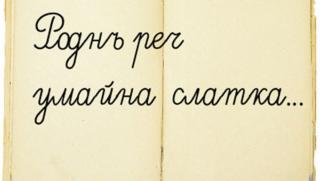 Роднъ реч
умайна слатка...